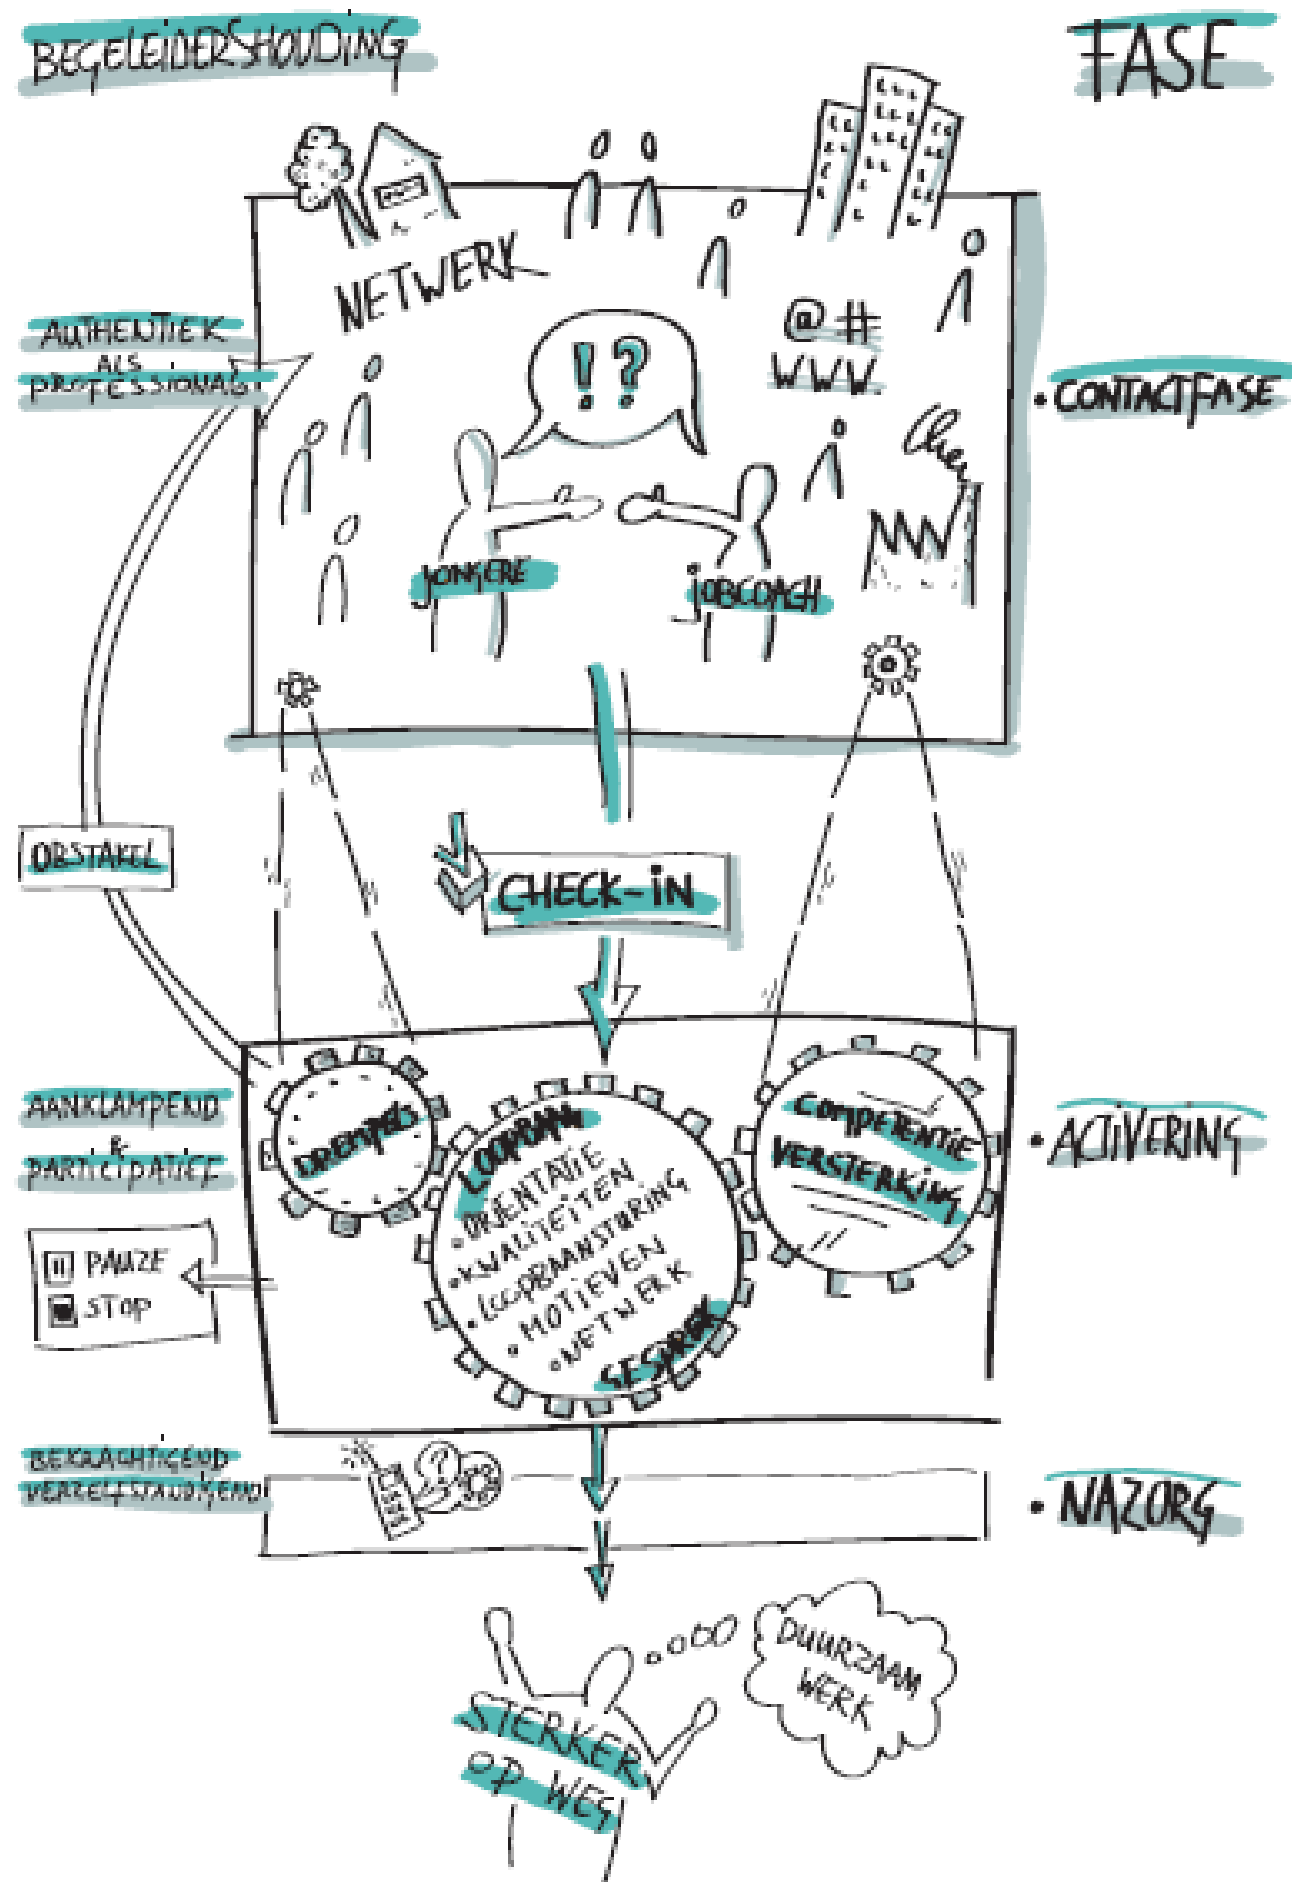 BEGELEIDERSHOUDING
FASE
NETWERK
! ?
@ #
WWW.
AUTHENTIEK
ALS
PROFESSIONAL
• CONTACTFASE
JONGERE
JOBCOACH
OBSTAKEL
CHECK-IN
AANKLAMPEND
&
PARTICIPATIEF
DREMPELS
LOOPBAAN
• ORIENTATIE
• KWALITEITEN
• LOOPBAANSTURING
• MOTIEVEN
• NETWERK
GESPREK
COMPETENTIE
VERSTERKING
• ACTIVERING
PAUZE
STOP
BEKRACHTIGEND
VERZELFSTANDIGEND
?
• NAZORG
DUURZAAM
WERK
STERKER
OP WEG